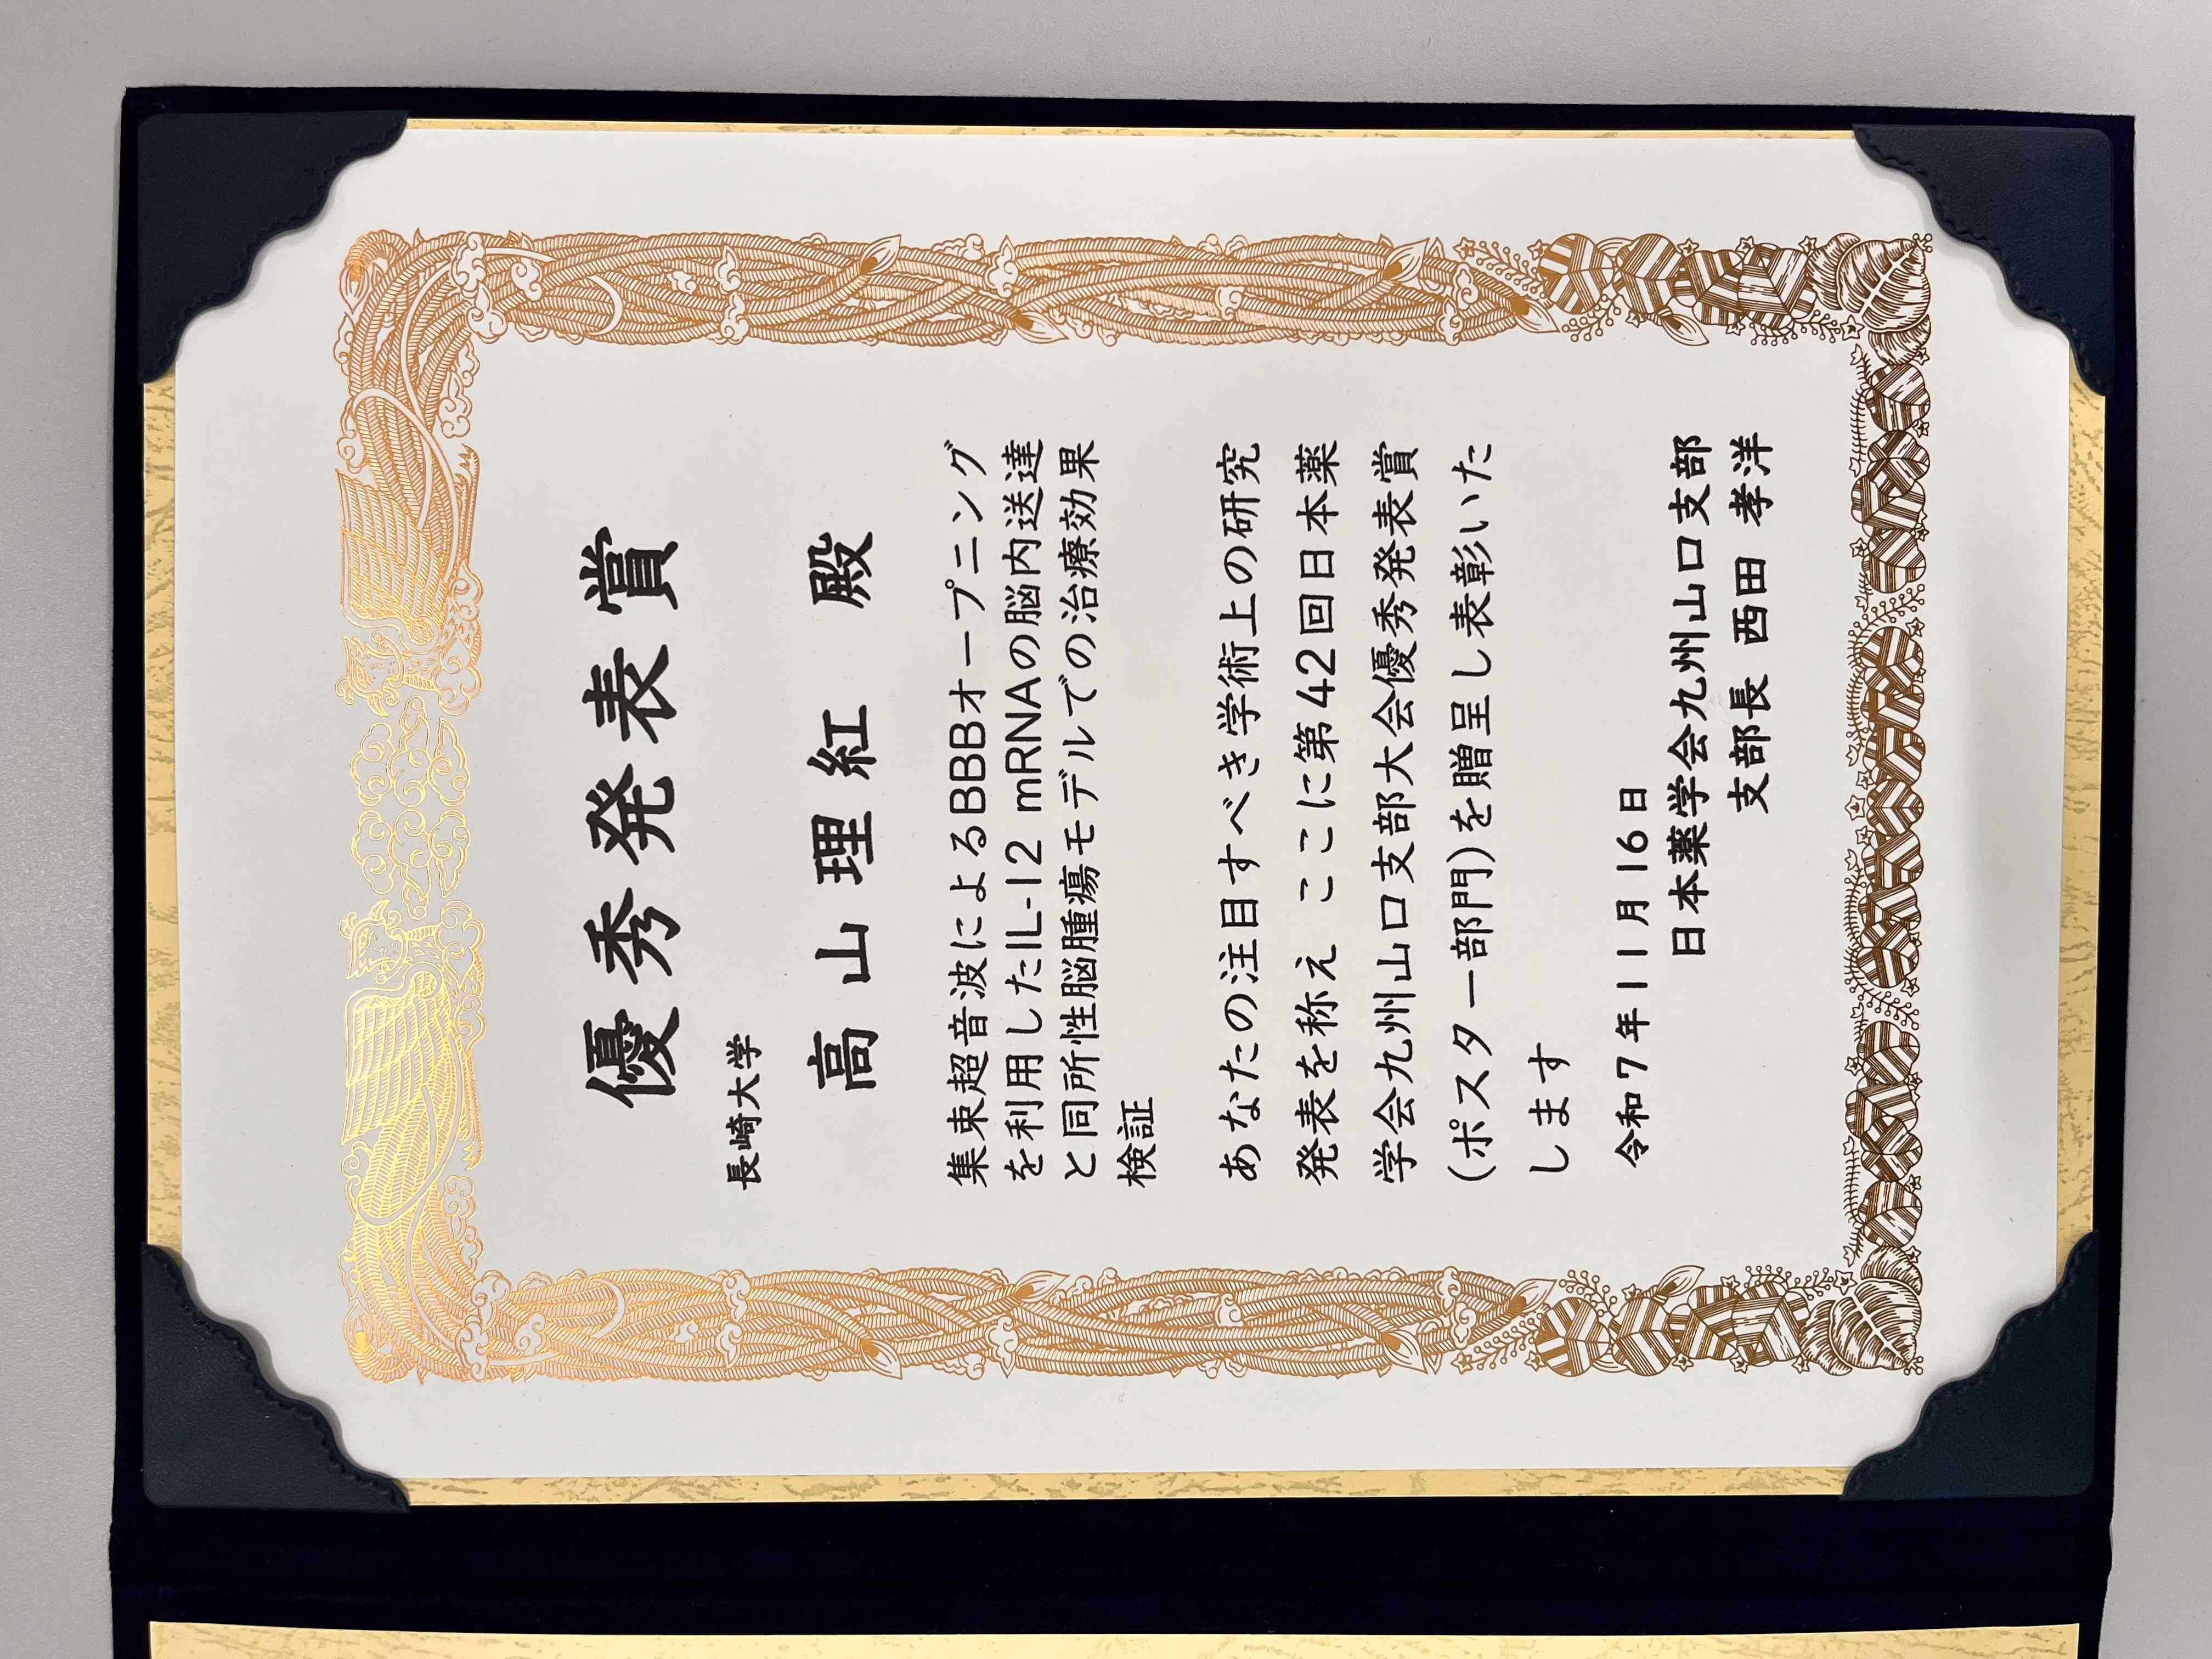 優秀発表賞
長崎大学
高山理紅 殿
集束超音波によるBBBオープニング
を利用したIL-12 mRNAの脳内送達
と同所性脳腫瘍モデルでの治療効果
検証
あなたの注目すべき学術上の研究
発表を称え ここに第42回日本薬
学会九州山口支部大会優秀発表賞
(ポスター部門)を贈呈し表彰いた
します
令和7年11月16日
日本薬学会九州山口支部
支部長 西田 孝洋